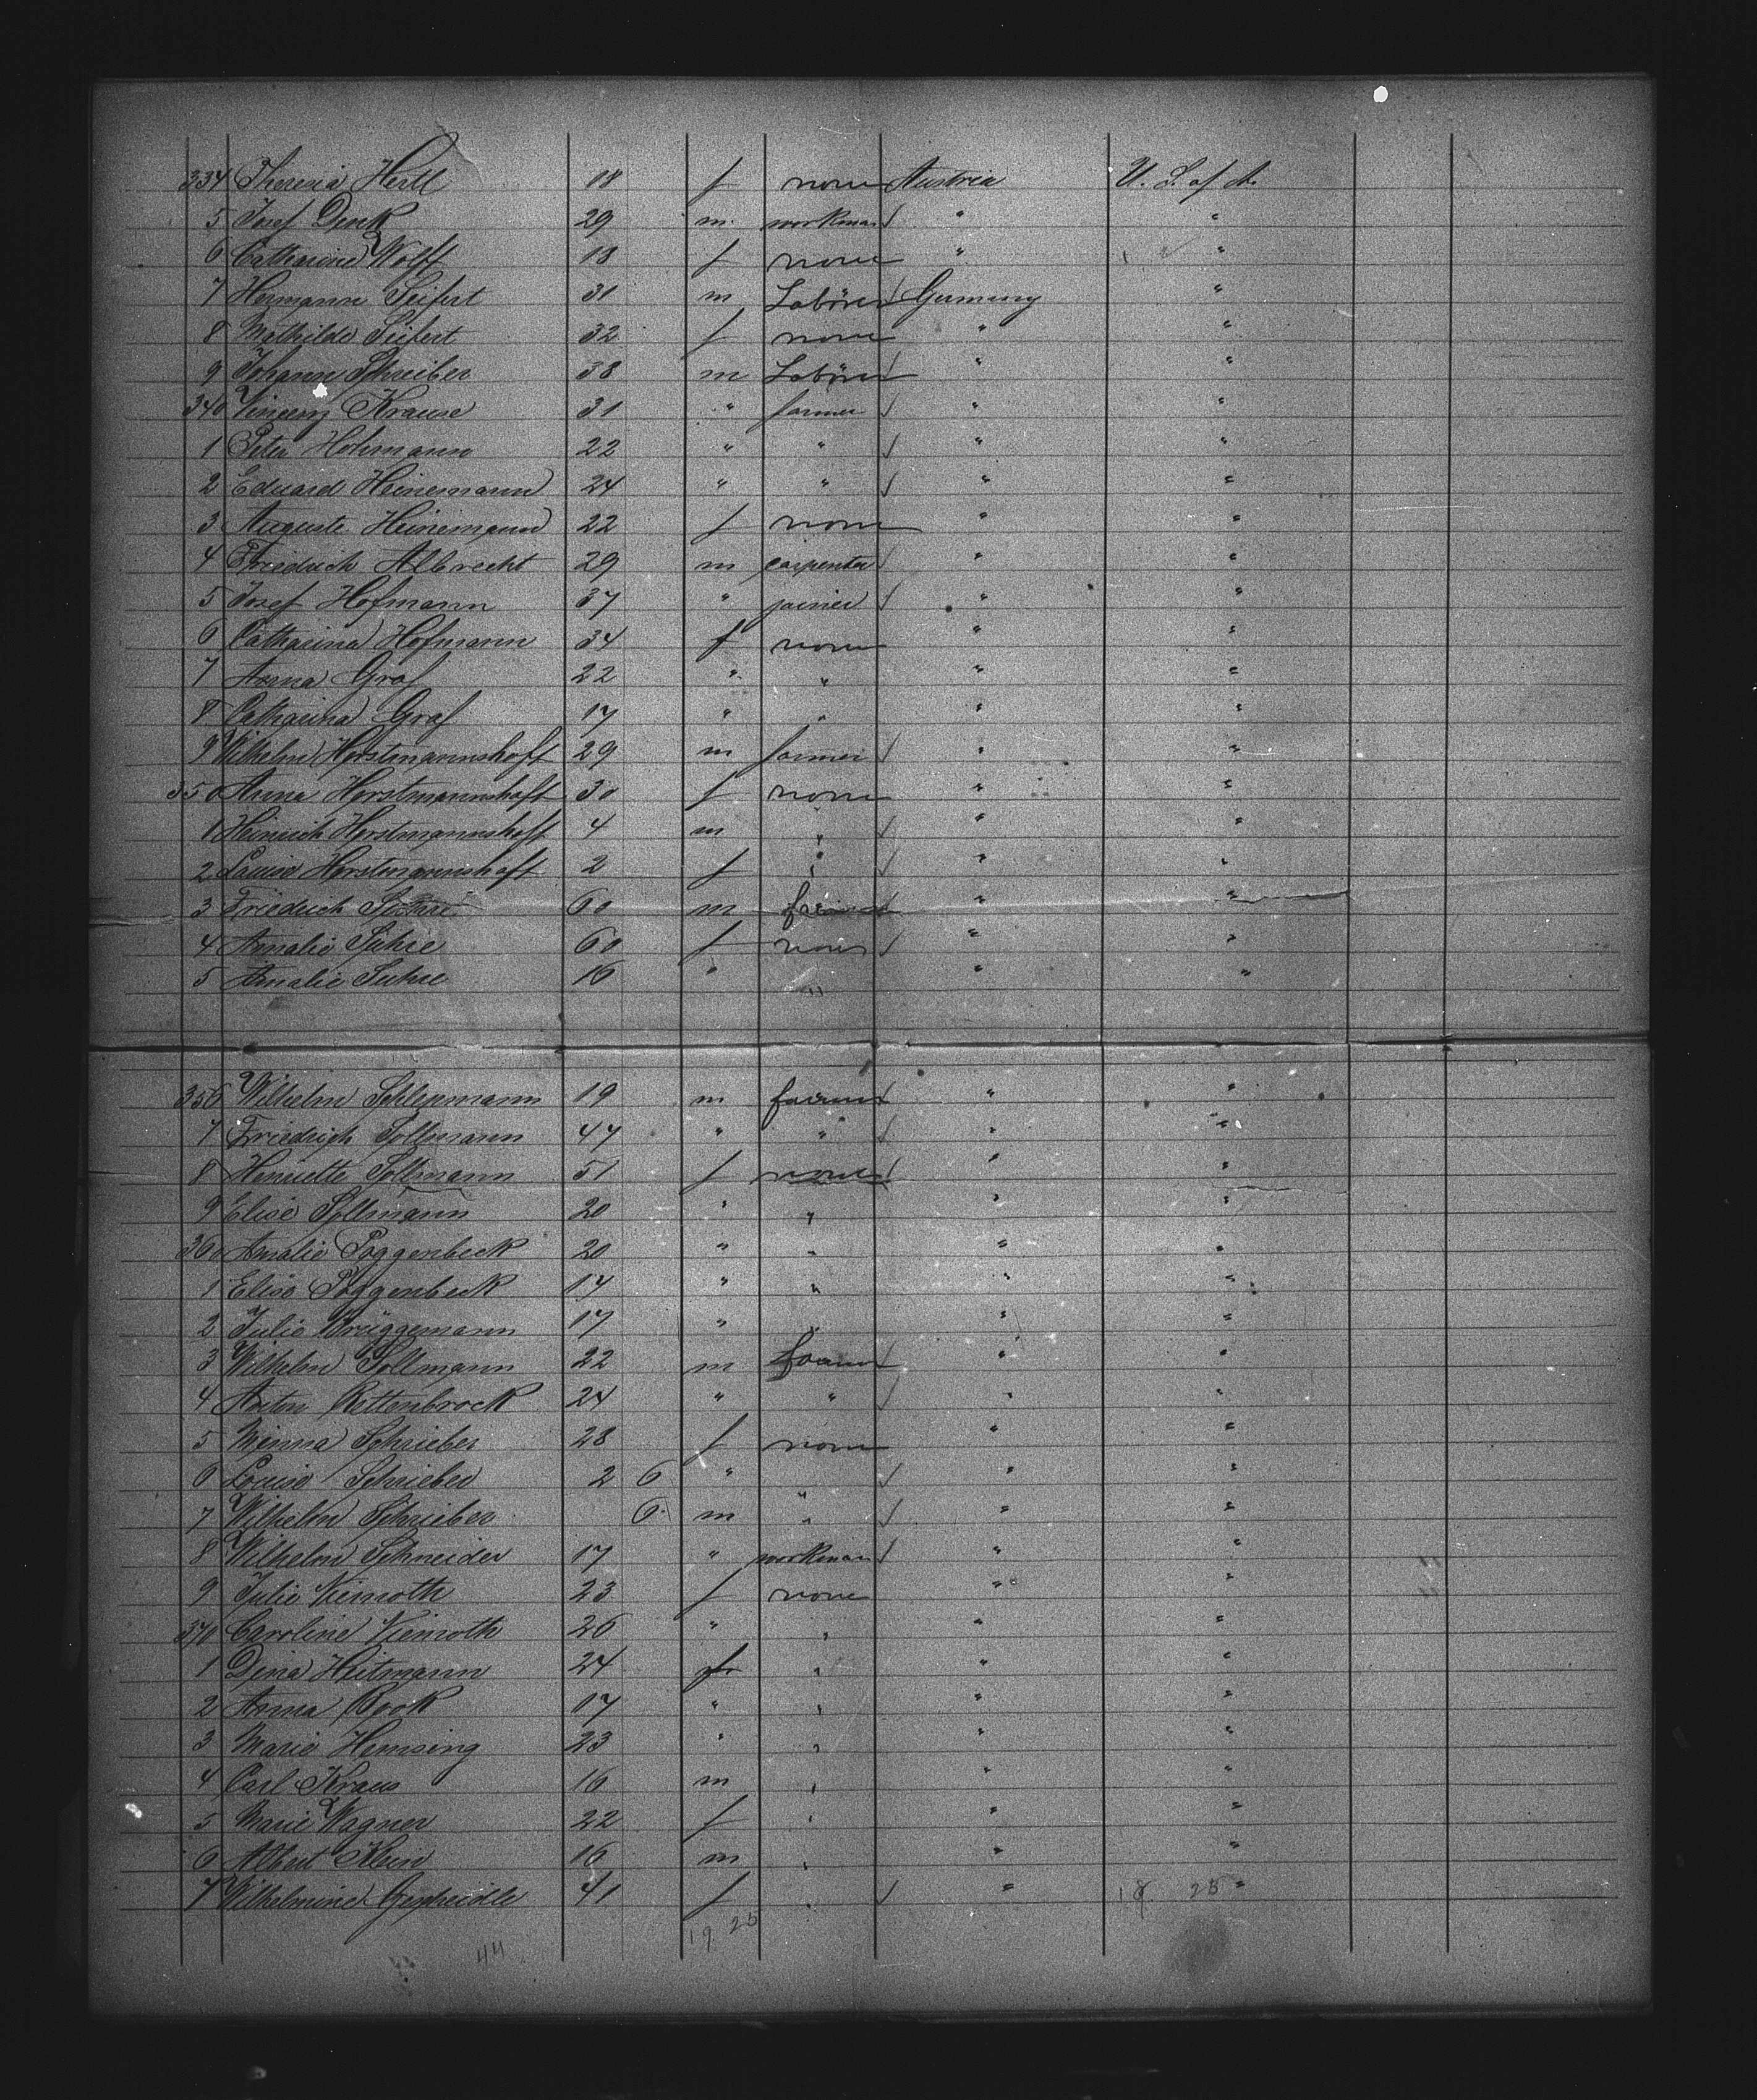 334 Theresia Hertl 18 f none Austria U. S. of A.
5 Josef Denk 29 m. workman " "
6 Catharina Wolff 18 f none " "
7 Hermann Seifert 31 m Laborer Germany "
8 Mathilde Seifert 32 f none " "
9 Johann Schreiber 38 m Laborer " "
340 Vincenz Krause 31 " farmer " "
1 Peter Hohmann 22 " " " "
2 Eduard Heinemann 24 " " " "
3 Auguste Heinemann 22 f none " "
4 Friedrich Albrecht 29 m carpenter " "
5 Josef Hofmann 37 " joiner " "
6 Catharina Hofmann 34 f none " "
7 Anna Graf 22 " " " "
8 Catharina Graf 17 " " " "
9 Wilhelm Horstmannshoff 29 m farmer " "
350 Anna Horstmannshoff 30 f none " "
1 Heinrich Horstmannshoff 4 m " " "
2 Louise Horstmannshoff 2 f " " "
3 Friedrich Suhre 60 m farmer " "
4 Amalie Suhre 60 f none " "
5 Amalie Suhre 16 " " " "
356 Wilhelm 19 m farmer " "
7 Friedrich Sollmann 47 " " " "
8 Henriette Sollmann 51 f none " "
9 Elise Sollmann 20 " " " "
360 Amalie Poggenbeck 20 " " " "
1 Elise Poggenbeck 17 " " " "
2 Julie Brüggemann 17 " " " "
3 Wilhelm Sollmann 22 m farmer " "
4 Anton Rottenbrock 24 " " " "
5 Minna Schrieber 28 f none " "
6 Louise Schrieber 2 6 " " " "
7 Wilhelm Schrieber 6 m " " "
8 Wilhelm Schneider 17 " workman " "
9 Julie Niemoth 23 f none " "
370 Caroline Niemoth 26 " " " "
1 Dina Heitmann 24 f " " "
2 Anna Book 17 " " " "
3 Marie Hemsing 23 " " " "
4 Carl Kraus 16 m " " "
5 Marie Wagner 22 f " " "
6 Albert Klein 16 m " " "
7 Wilhelmine 41 f " " 18 25 "
44 19. 25